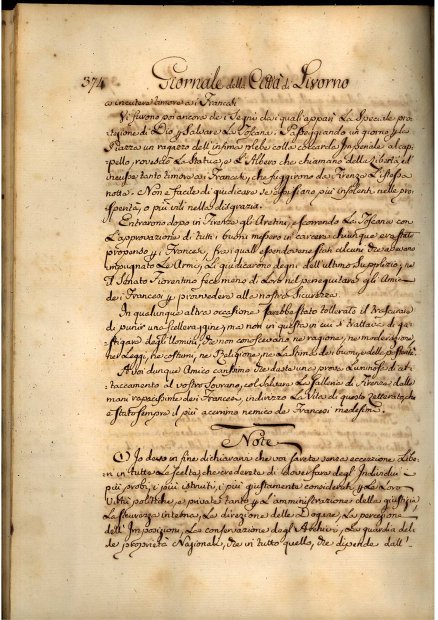 374 Giornale della Città di Livorno
a incutere timore ai Francesi
Vi furono poi ancora de i Segni da i quali apparì La Speciale pro
tezione di Dio p Salvare La Toscana. Passeggiando un giorno p La
Piazza un ragazzo dell'infima Plebe colla coccarda Imperiale al cap-
pello, rovesciò La Statua, e L'Albero che chiamano della Libertà, ed
incusse tanto timore ai Francesi, che fuggirono da Firenze L'istessa
notte. Non è facile di giudicare se essi siano più insolenti nella pro-
sperità, o più vili nella disgrazia.
Entrarono dopo in Firenze gli Aretini, e scorrendo La Toscana con
L'approvazione di tutti i buoni messero in carcere chiunque era stato
propenso p i Francesi, fra i quali essendovene stati alcuni che avevano
impugnato Le Armi, Li giudicarono degni dell'ultimo Supplizio, ne
Il Senato Fiorentino fece meno di Loro nel perseguitare gli Amici
dei Francesi p provvedere alla nostra Sicurezza.
In qualunque altra occasione sarebbe stato tollerato il trascurare
di punire una scelleraggine, ma non in questa in cui si trattava di ga-
stigare degl'Uomini, che non conoscevano ne ragione, ne moderazione,
ne Leggi, ne costumi, ne Religione, ne La stima dei buoni, e della posterità.
A voi dunque Amico carissimo che deste una prova Luminosa di at-
taccamento al vostro Sovrano, col Salvare La Galleria di Firenze dalle
mani rapacissime dei Francesi, indirizzo La Vita di questo Letterato, che
è stato sempre il più acerrimo nemico de Francesi medesimi.
Note
Io devo in fine dichiarare che voi sarete senza eccezione Libe
ri in tutte Le scelte, che crederete di dover fare degl'Individui
più probi, i più istruiti, i più giustamente considerati p Le Loro
Virtù politiche, e private tanto p L'amministrazione della giustizia
La sicurezza interna, La direzione delle Dogane, La percezione
dell'Imposizioni, La conservazione degl'Archivi, La guardia del-
le proprietà Nazionali, che in tutto quello, che dipende dall'